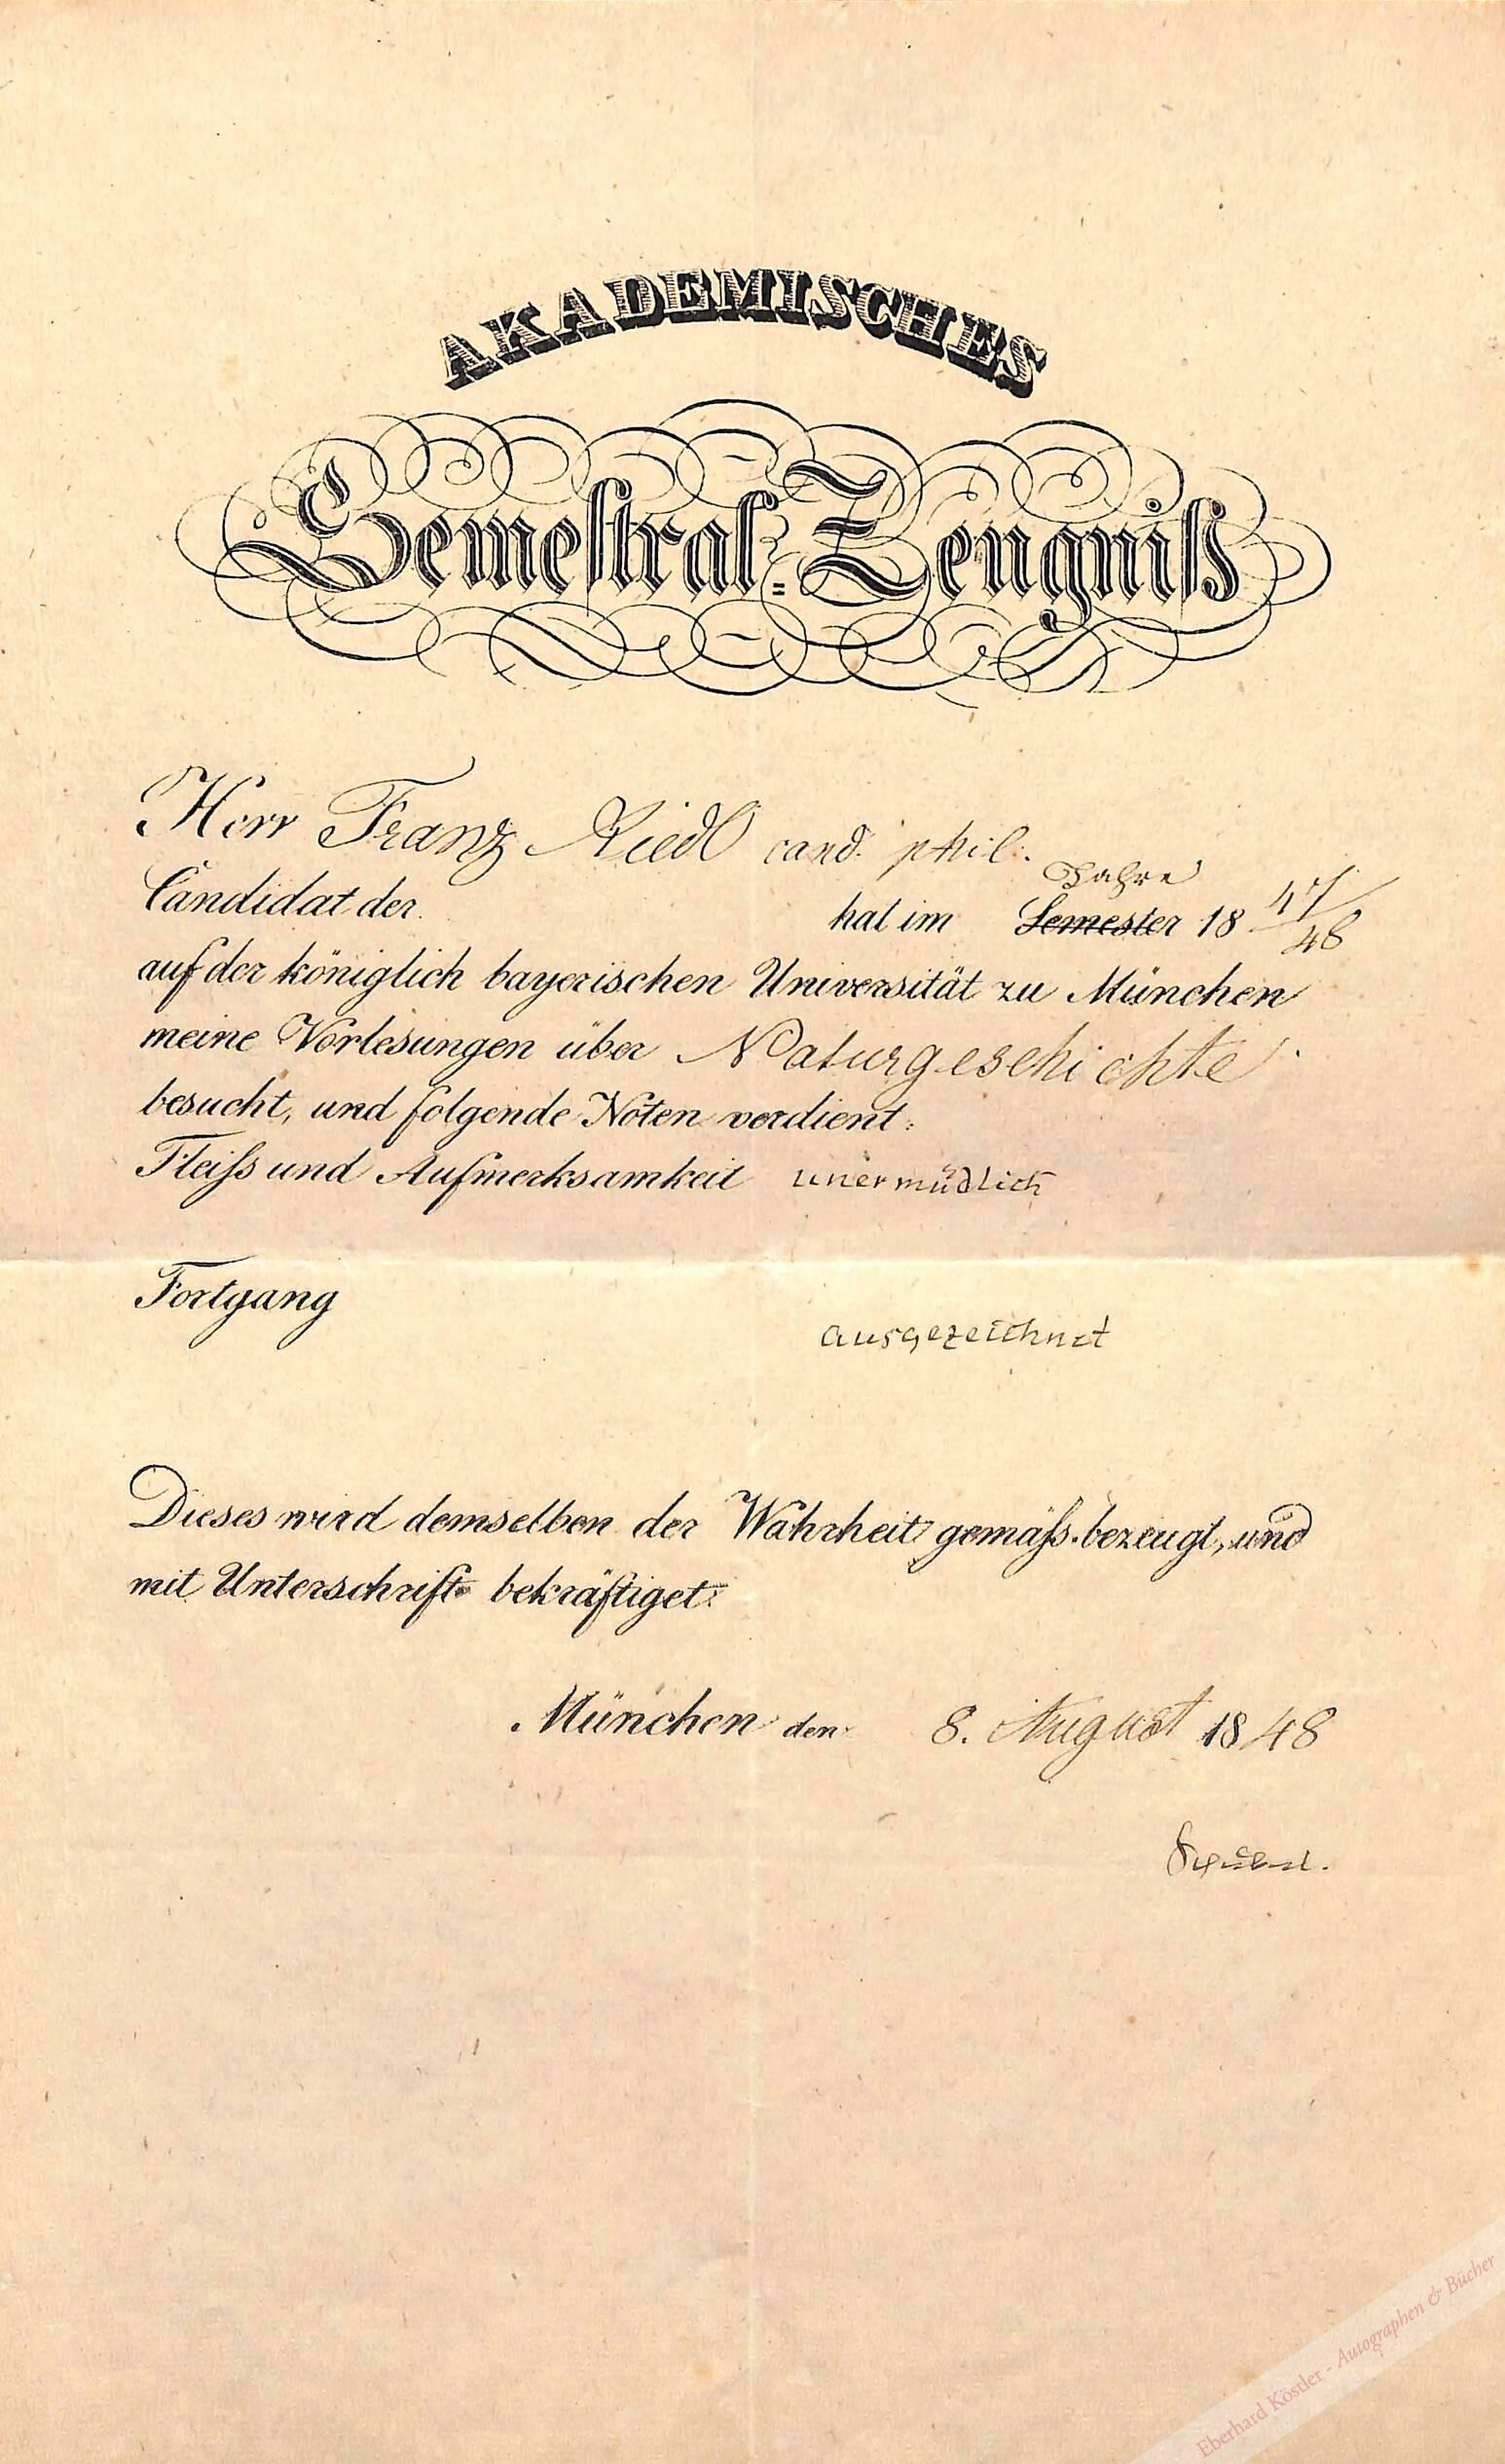 AKADEMISCHES
Semestral=Zeugniß
Herr Franz Riedl cand. phil.
Jahre
Candidat der hat im Semester 18 47/48
auf der königlich bayerischen Universität zu München
meine Vorlesungen über Naturgeschichte
besucht, und folgende Noten verdient:
Fleiss und Aufmerksamkeit unermüdlich
Fortgang
ausgezeichnet
Dieses wird demselben der Wahrheit gemäss bezeugt, und
mit Unterschrift bekräftiget.
München den 8. August 1848
Eberhard Köstler - Autographen & Bücher